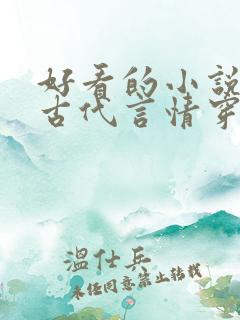 好看的小說
古代言情穿
溫仕兵
未經同意禁止轉載